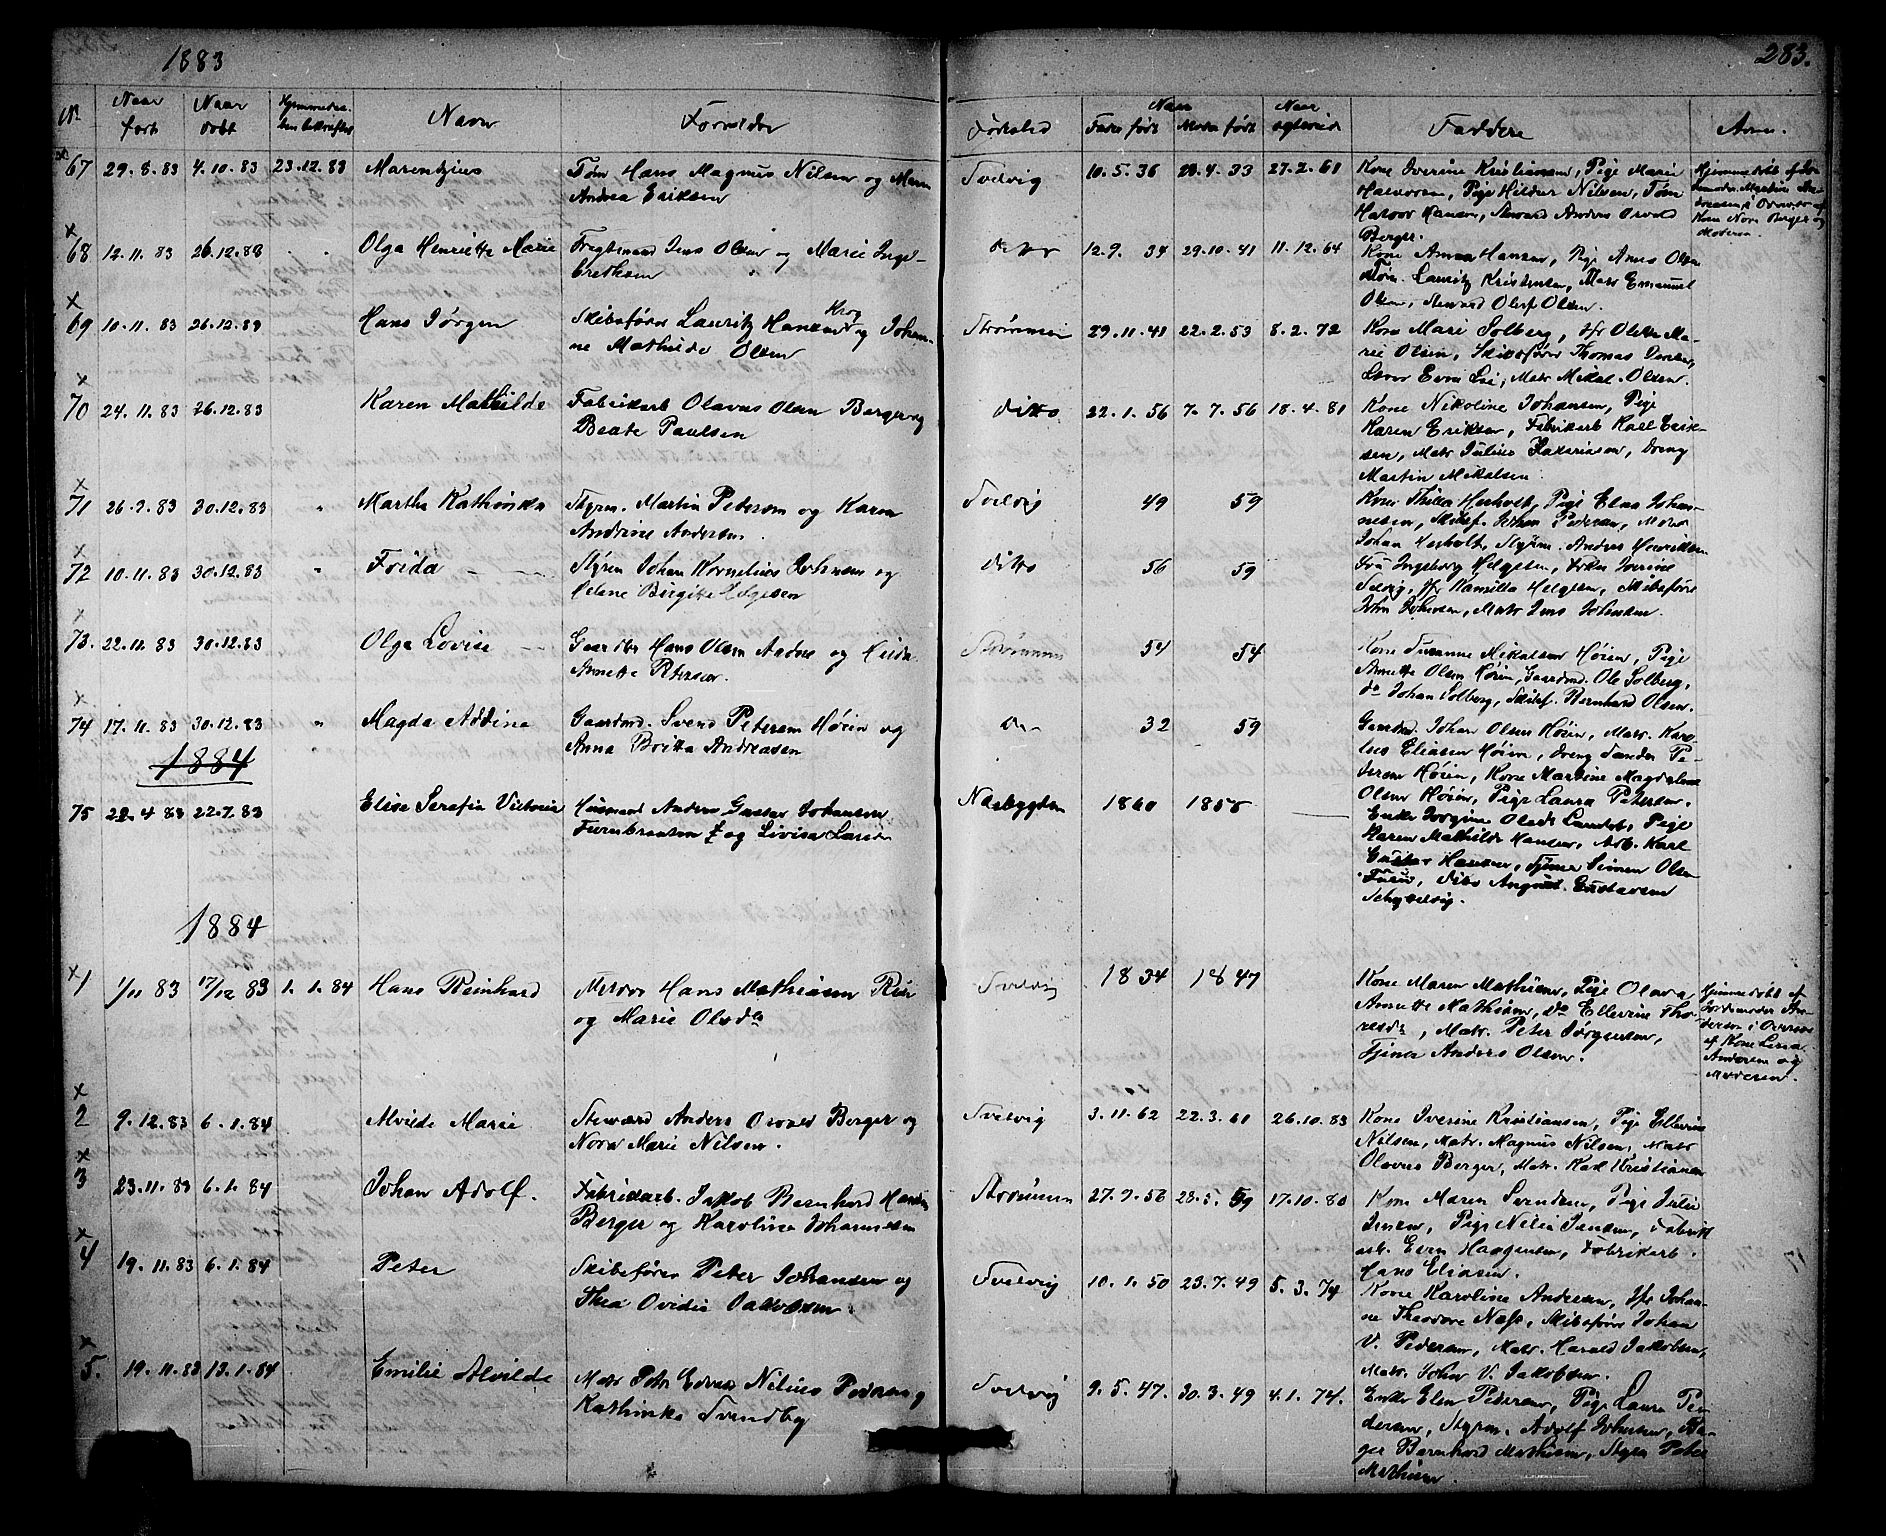 1883
283.
No
Naar født
Naar døbt
Hjemmedaaben bekræftet
Navn
Forældre
Fødested
Naar
Fader født
Moder født
Naar ægteviede
Faddere
Anm.
67 29.8.83 4.10.83 23.12.83 Marentzius
Tøm Hans Magnus Nilsen og Maren
Andrea Eriksen
Svelvig 10.5.36 4.33 27.2.61
Kone Iverine Kristiansen, Pige Marie
Halvorsen, Pige Hilda Nilsen, Tøm
Halvor Hansen, Steward Anders Osvald
Berger.
Hjemmedøbt af
Kone Nora Berger og
Moderen.
x
68 12.11.83 26.12.83 Olga Henriette Marie
Fragtemand Jens Olsen og Marie Inge-
brethsen
ditto 12.9.34 29.10.41 11.12.64
Kone Anna Hansen, Pige Anna Olsen
Tøm. Lauritz Kristensen, Matr Emanuel
Olsen, Steward Oluf Olsen.
x
69 10.11.83 26.12.83 Hans Jørgen
Skibsfører Lauritz Hansen Krog og Johan-
ne Mathilde Olsen
Strømmen 29.11.41 22.2.53 8.2.72
Kone Mari Solberg, Fr Olette Ma-
rie Olsen, Skibsfører Thomas
Even Lie, Matr Mikal Olsen.
x
70 24.11.83 26.12.83 Karen Mathilde
Fabrikarb Olavus Olsen Berger og
Beate Paulsen
ditto 22.1.56 7.7.56 18.4.81
Kone Nikoline Johansen, Pige
Karen Eriksen, Fabrikarb Karl Erik-
sen, Matr Julius Zakariasen, Dreng
Martin Mikalsen.
x
71 26.9.83 30.12.83 " Martha Kathinka
Styrm. Martin Petersen og Karen
Andrine Andersen.
Svelvig 49 59
Kone Thilla Herholt, Pige Elna Johan-
nesen, Skibsf. Johan Pedersen, Matr
Johan Herholt, Styrm. Anders Henriksen
x
72 10.11.83 30.12.83 " Frida
Styrm Johan Kornelius Johnsen og
Helene Birgitte Helgesen
ditto 56 59
Fru Ingeborg Helgesen, Frøken Iverine
Svelvig, Fr Kamilla Helgesen, Skibsfører
John Johnsen, Matr Jens Johnsen.
x
73. 22.11.83 30.12.83 Olga Lovise
Gaardbr Hans Olsen Aadne og Hilda
Annette Petersen.
Strømmen 54 54
Kone Susanne Mikalsen Høien, Pige
Annette Olsen Høien, Gaardmd. Ole Solberg,
do Johan Solberg, Skibsf. Bernhard Olsen.
x
74 17.11.83 30.12.83 " Magda Addina
Gaardmd. Svend Petersen Høien og
Anna Britta Andreasen
do 32 59
Gaardmd. Johan Olsen Høien, Matr. Karo-
lus Eliasen Høien, Dreng Sander Pe-
dersen Høien, Kone Martine Magdalene
Olsen Høien, Pige Laura Petersen.
1884
75 22.4 83 22.7.83 Elise Serafia Victoria
Husmand Anders Gustav Johansen
og Lovisa Larsen
Næsbygden 1860 1858
Enke Jorgine Olsdt, Pige
Karen Mathilde Hansen, Arb. Karl
Gustav Hansen, Tjener Simen Olsen
, ditto August Gustavsen
1884
x 1 1/11 83 17/12 83 1.1.84 Hans Reinhard
Matros Hans Mathiasen Rur
og Marie Olsdtr
Svelvig 1834 1847
Kone Maren Mathisen, Pige Olava
Annette Mathisen, do Ellevine Tho-
resdtr, Matr. Peter Jørgensen,
Tjener Anders Olsen.
Hjemmedøbt af
Jordemoder An-
dersen i Overvær
af Kone Lena
Andersen og
Moderen.
x
2 9.12.83 6.1.84 Alvilde Marie
Steward Anders Osvald Berger og
Nora Marie Nilsen.
Svelvig 3.11.62 22.3.61 26.10.83
Kone Iverine Kristiansen, Pige Ellevine
Nilsen, Matr. Magnus Nilsen, Matr
Olavus Berger, Matr. Karl Kristiansen
x
3 23.11.83 6.1.84 Johan Adolf.
Fabrikarb. Jakob Bernhard Hansen
Berger og Karoline Johannesen
Strømmen 27.7.56 28.5.59 17.10.80
Kone Maren Svendsen, Pige Julie
Jensen, Pige Nilia Jansen, Fabrik-
arb. Even Haagensen, Fabrikarb.
Hans Eliasen.
x
4 19.11.83 6.1.84 Peter
Skibsfører Peter Johansen og
Thea Ovidia Jakobsen.
Svelvig 10.1.50 23.7.49 5.3.74
Kone Karoline Andersen, Fr Johan-
ne Theodore Næss, Skibsfører Johan
V. Pedersen, Matr. Harald Jakobsen,
Matr. John V. Jakobsen.
x
5. 19.11.83 13.1.84 Emilie Alvilde
Matr Peter Edvard Nilius Pedersen og
Kathinka Svendby
Svelvig 9.5.47. 30.3.49 4.1.74.
Enke Elen Pedersen, Pige Laura Pe-
dersen, Styrm. Adolf Johnsen, Ba-
ger Bernhard Mathisen, Styrm Peter
Mathisen.